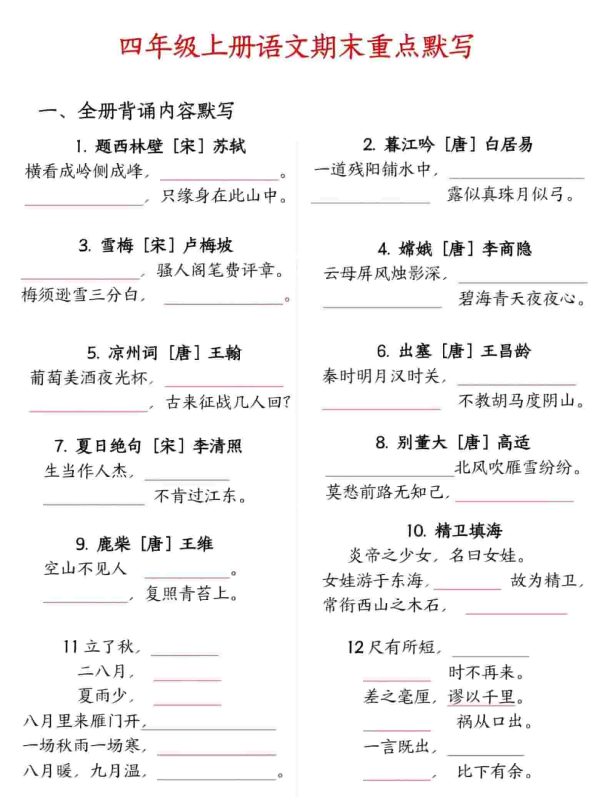 四年级上册语文期末重点默写
一、全册背诵内容默写
1. 题西林壁［宋］苏轼
横看成岭侧成峰，____________。
____________，只缘身在此山中。
2. 暮江吟［唐］白居易
一道残阳铺水中，
____________ 露似真珠月似弓。
3. 雪梅［宋］卢梅坡
____________，骚人阁笔费评章。
梅须逊雪三分白，____________。
4. 嫦娥［唐］李商隐
云母屏风烛影深，____________
____________ 碧海青天夜夜心。
5. 凉州词［唐］王翰
葡萄美酒夜光杯，____________
____________，古来征战几人回？
6. 出塞［唐］王昌龄
秦时明月汉时关，____________
____________ 不教胡马度阴山。
7. 夏日绝句［宋］李清照
生当作人杰，____________
____________ 不肯过江东。
8. 别董大［唐］高适
____________北风吹雁雪纷纷。
莫愁前路无知己，____________
9. 鹿柴［唐］王维
空山不见人 ____________
____________，复照青苔上。
10. 精卫填海
炎帝之少女，名曰女娃。
女娃游于东海，________ 故为精卫，
常衔西山之木石，____________
11 立了秋，________
二八月，________
夏雨少，________
八月里来雁门开，____________
一场秋雨一场寒，____________
八月暖，九月温，____________。
12 尺有所短，________
________ 时不再来。
差之毫厘，谬以千里。
________ 祸从口出。
一言既出，________
________，比下有余。